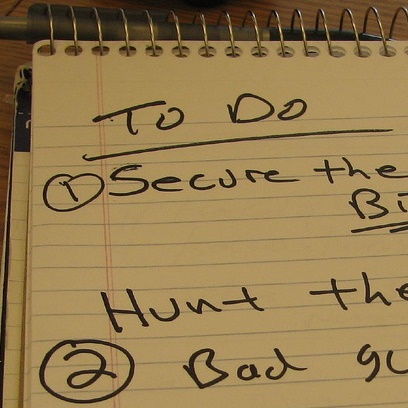 To Do
① Secure the
Bi
Hunt the
② Bad gu